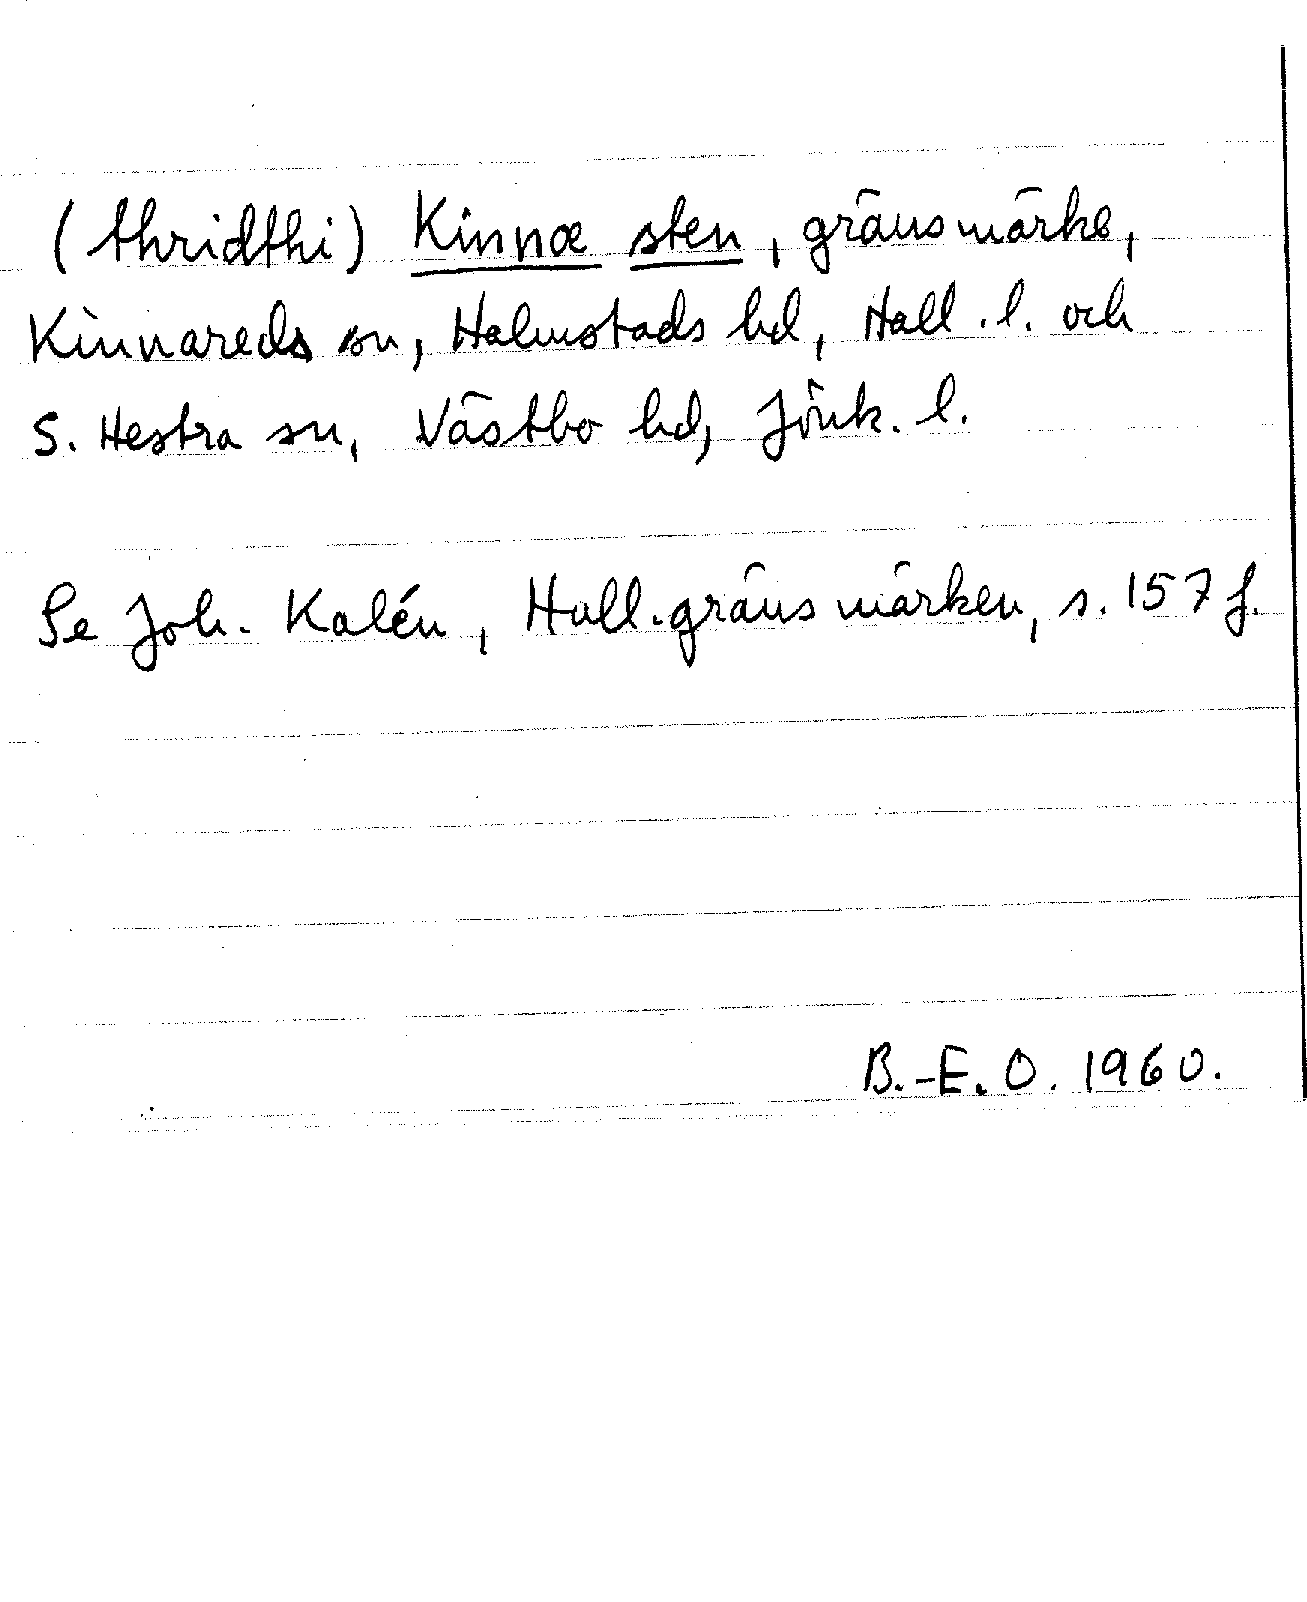 (thridthi) Kinnæ sten, gränsmärke,
Kinnareds sn, Halmstads hd, Hall. l. och
S. Hestra sn, Västbo hd, Jönk. l.
Se Joh. Kalén, Hall. gränsmärken, s. 157 f.
B.-E. O. 1960.